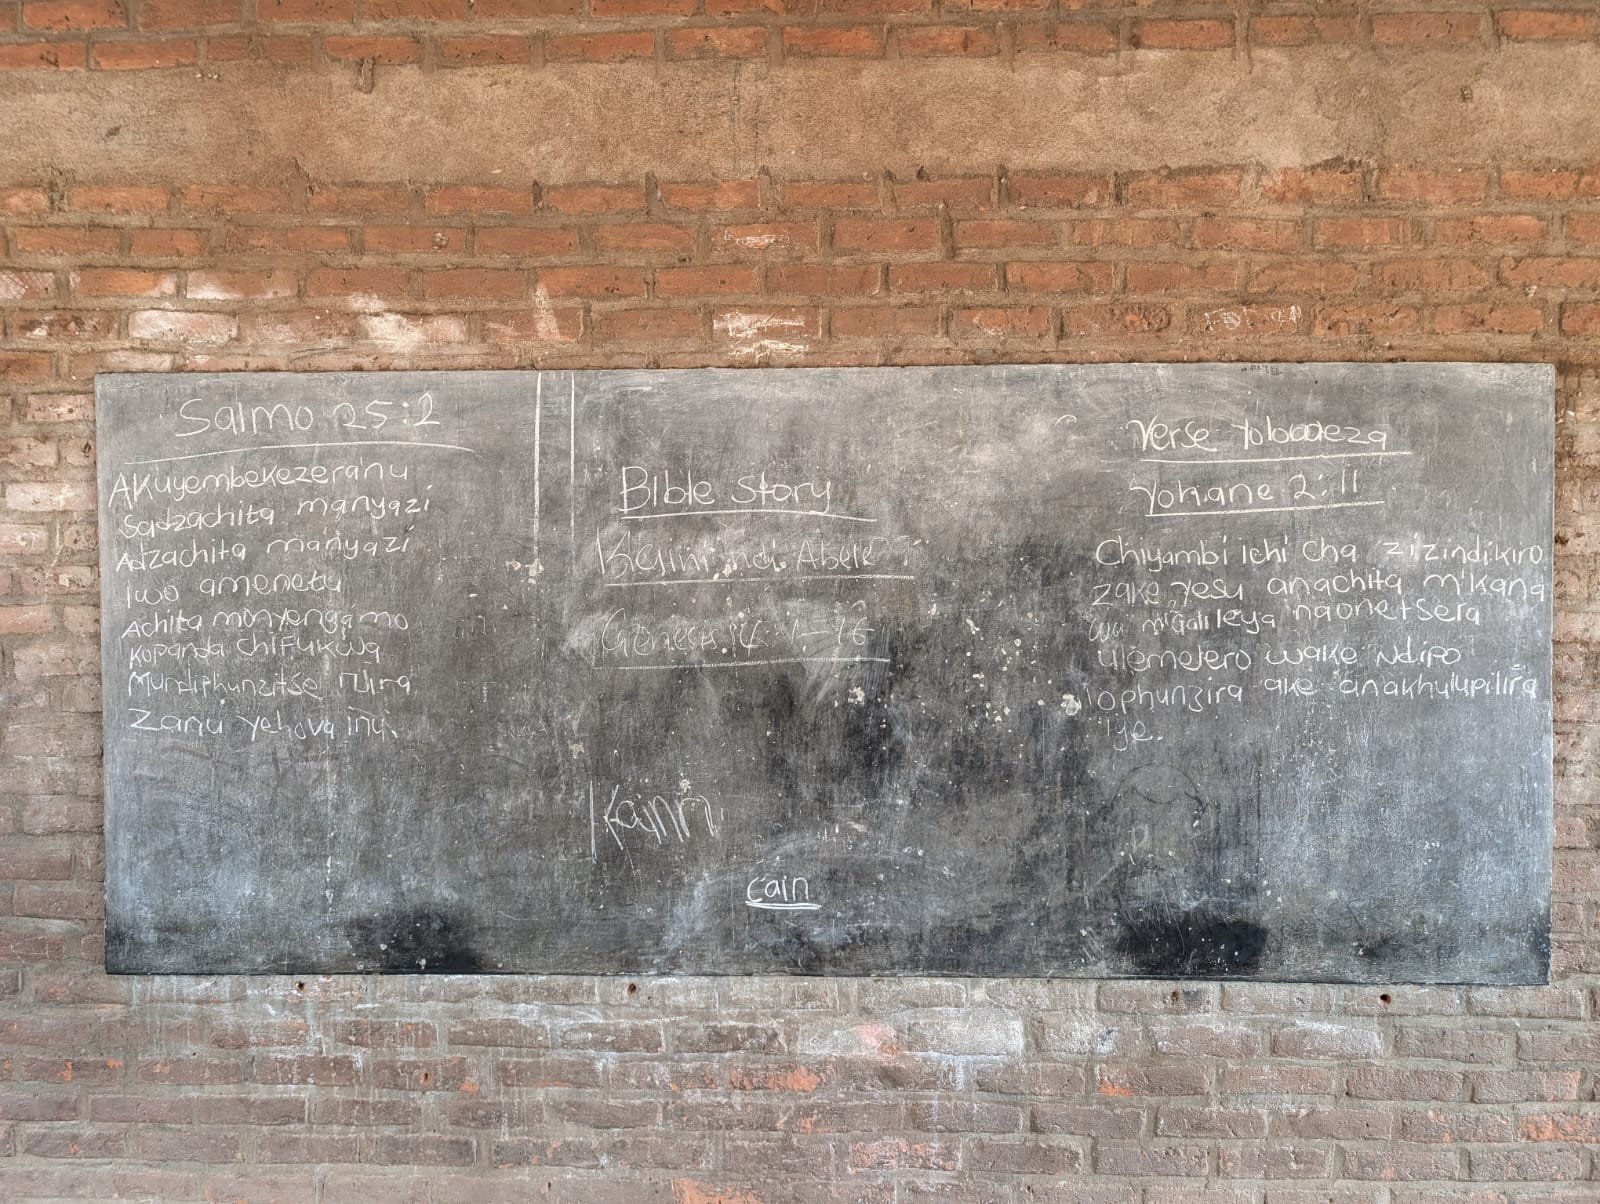 Salmo 25:2
Akuyembekezeranu
Sadzachita manyazi
Adzachita manyazi
iwo amenetu
Achita monyengamo
Kopanda chifukwa
Mundiphunzitse njira
Zanu yehova inu.
Bible story
Kaini ndi Abele
Genesis 4: 1-16
Kainn
cain
Verse yoloweza
Yohane 2:11
Chiyambi ichi cha zizindikiro
zake yesu anachita m'kana
wa m'Galileya naonetsera
ulemelero wake Ndipo
ophunzira ake anakhulupilira
iye.